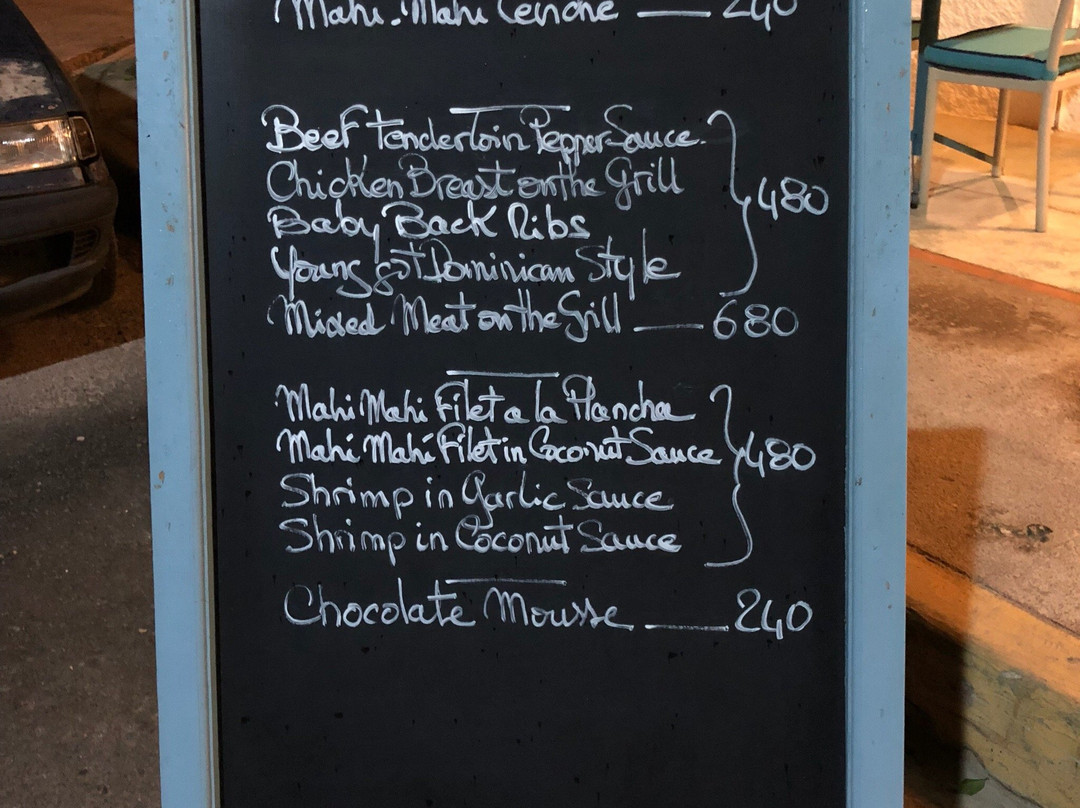 Mahi-Mahi Ceviche — 240
Beef Tenderloin Pepper Sauce.
Chicken Breast on the Grill
Baby Back Ribs
480
Young got Dominican Style
Mixed Meat on the Grill — 680
Mahi Mahi Filet a la Plancha
Mahi Mahi Filet in Coconut Sauce 480
Shrimp in Garlic Sauce
Shrimp in Coconut Sauce
Chocolate Mousse — 240